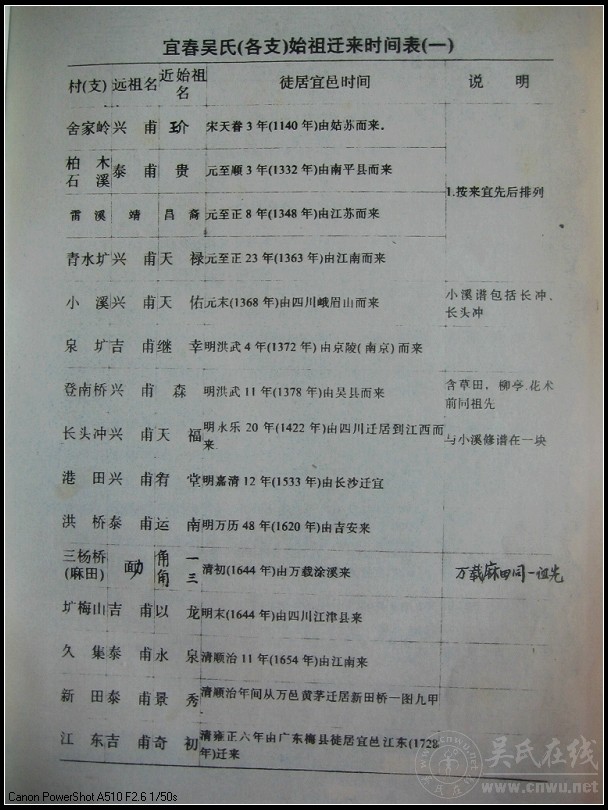 宜春吴氏(各支)始祖迁来时间表(一)
村(支) 远祖名 近始祖名 徒居宜邑时间 说 明
舍家岭 兴 甫 玠 宋天眷 3 年(1140 年)由姑苏而来.
柏木石溪 泰 甫 贵 元至顺 3 年(1332 年)由南平县而来.
1.按来宜先后排列
雷 溪 靖 昌 裔 元至正 8 年(1348 年)由江苏而来
青水圹 兴 甫 天 禄 元至正 23 年(1363 年)由江南而来
小 溪 兴 甫 天 佑 元末(1368 年)由四川峨眉山而来 小溪谱包括长冲、长头冲
泉 圹 吉 甫 继 幸 明洪武 4 年(1372 年) 由京陵( 南京) 而来
登南桥 兴 甫 森 明洪武 11 年(1378 年)由吴县而来 含草田, 柳亭.花术前同祖先
长头冲 兴 甫 天 福 明永乐 20 年(1422 年)由四川迁居到江西而来. 与小溪修谱在一块
港 田 兴 甫 宥 堂 明嘉清 12 年(1533 年)由长沙迁宜
洪 桥 泰 甫 运 南 明万历 48 年(1620 年)由吉安来
三杨桥(麻田) 角一 角三 清初(1644 年)由万载涂溪来 万载麻田同一祖先
圹梅山 吉 甫 以 龙 明末(1644 年)由四川江津县来
久 集 泰 甫 水 泉 清顺治 11 年(1654 年)由江南来
新 田 泰 甫 景 秀 清顺治年间从万邑黄茅迁居新田桥一图九甲
江 东 吉 甫 奇 初 清雍正六年由广东梅县徒居宜邑江东(1728年)迁来
吴氏在线
www.cnwu.net
Canon PowerShot A510 F2.6 1/50s